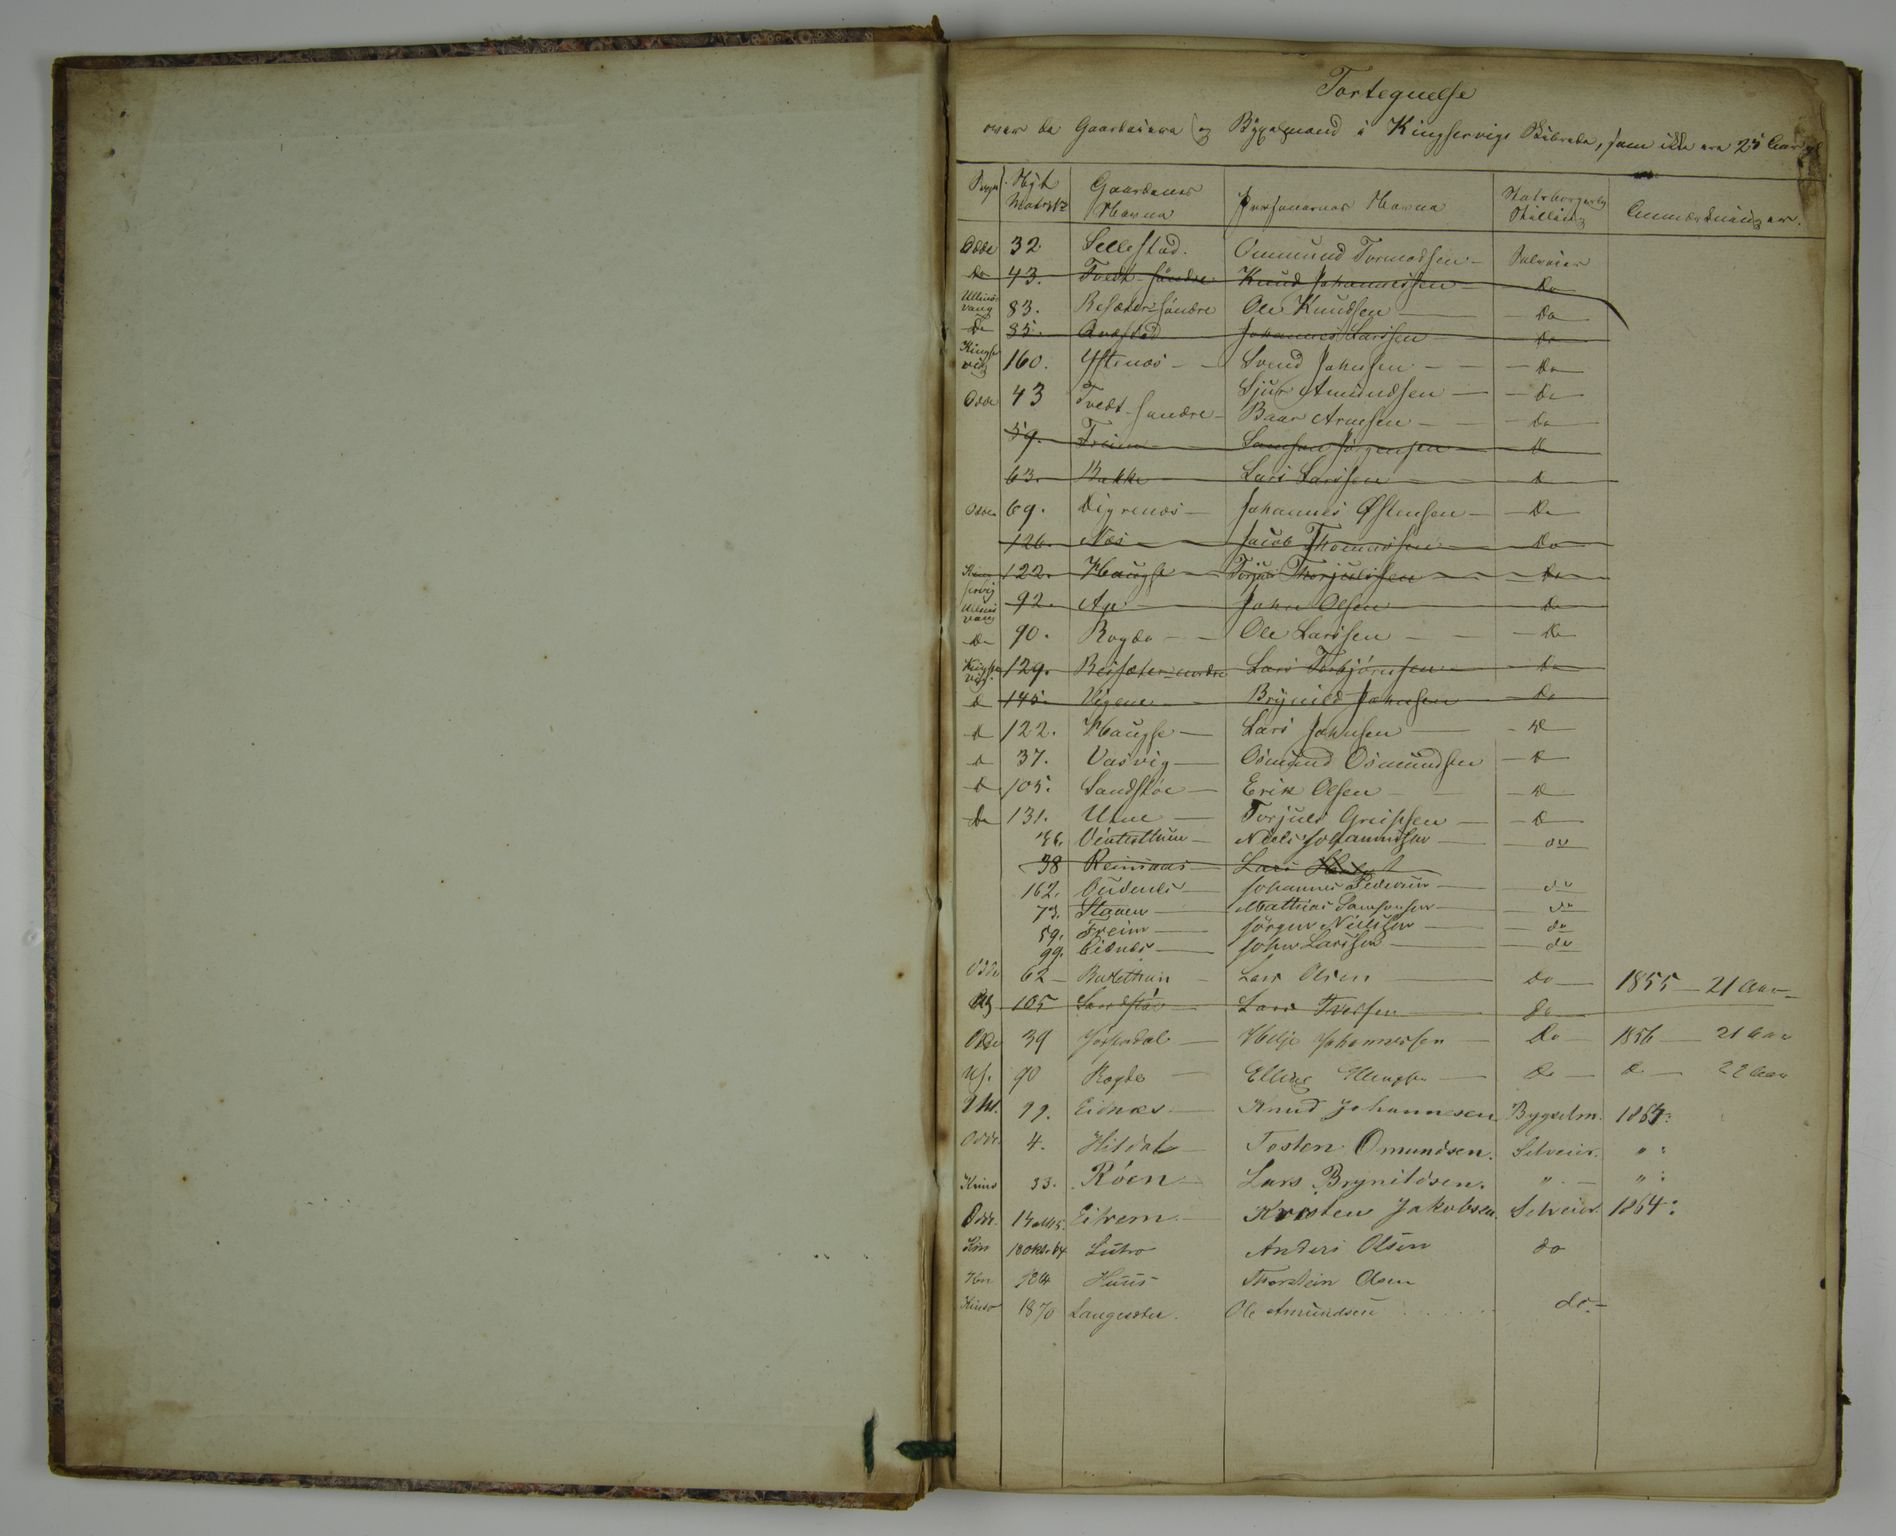 Fortegnelse
over de Gaardeiere og Bygselmænd i Kingservigs Skibrede, som ikke ere 25 Aar gl
Sogn Nyt Matr No Gaardenes Navne Personernes Navne Statsborgerlig Stilling Anmærkninger.
Odde 32 Sellestad. Ommund Tormodsen Selveier
Do 43. Tvedt søndre Knud Johannessen Do
Ullensvang 83. Resæter søndre Ole Knudsen Do
Do 85. Johannes Larssen Do
Kingservig 160. Ystenæs Svend Johnsen Do
Odde 43 Tvedt søndre Sjur Amundsen Do
Baar Arnesen Do
59. Freim Samson Jørgensen Do
63. Bakke Lars Larssen D
Odde 69. Digrenæs Johannes Østensen Do
126. Næs Jacob Thomassen Do
Kingservig 122. Haugse Torjuls Thorjulssen Do
Ullensvang 92. Aga Johan Olsen Do
Do 90. Rogde Ole Larssen Do
Kingservig 129. Beisæter indre Lars Torbjørnssen Do
D 145. Vigene Brynild Johnsen Do
D 122. Haugse Lars Johnsen D
D 37. Vasvig Osmund Osmundsen D
D 105. Sandstøe Erik Olsen D
Do 131. Utne Torjuls Greipsen D
36. Niels Johannessen do
38 Reinsaas Lars
162. Oudenes Johannes Pedersen do
73. Staven Mathias Samsonsen do
59. Freim Jørgen Nielssen do
99. Eidnes John Larssen do
Odde 62 Baustthun Lars Olsen Do 1855 21 Aar
105 Sandstø Lars Iversen Do
Odde 39 Jøsendal Helje Johannessen Do 1856 21 Aar
Us. 90 Rogde Elling Ellingsen Do D 22 Aar
Ull. 99. Eidnæs Knud Johannesen Bygselm. 1864:
Odde. 4. Hildal Tosten Omundsen. Selveier. " :
Kinso 33. Røen Lars Brynildsen. " " :
Odde. Eitrem Kristen Jakobsen. Selveier. 1864:
Kin 18 okt. 64 Lutro Anders Olsen do
Kin 1864 Huus Thorstein Olsen
Kinso 1870 Langesæter. Ole Amundsen do.